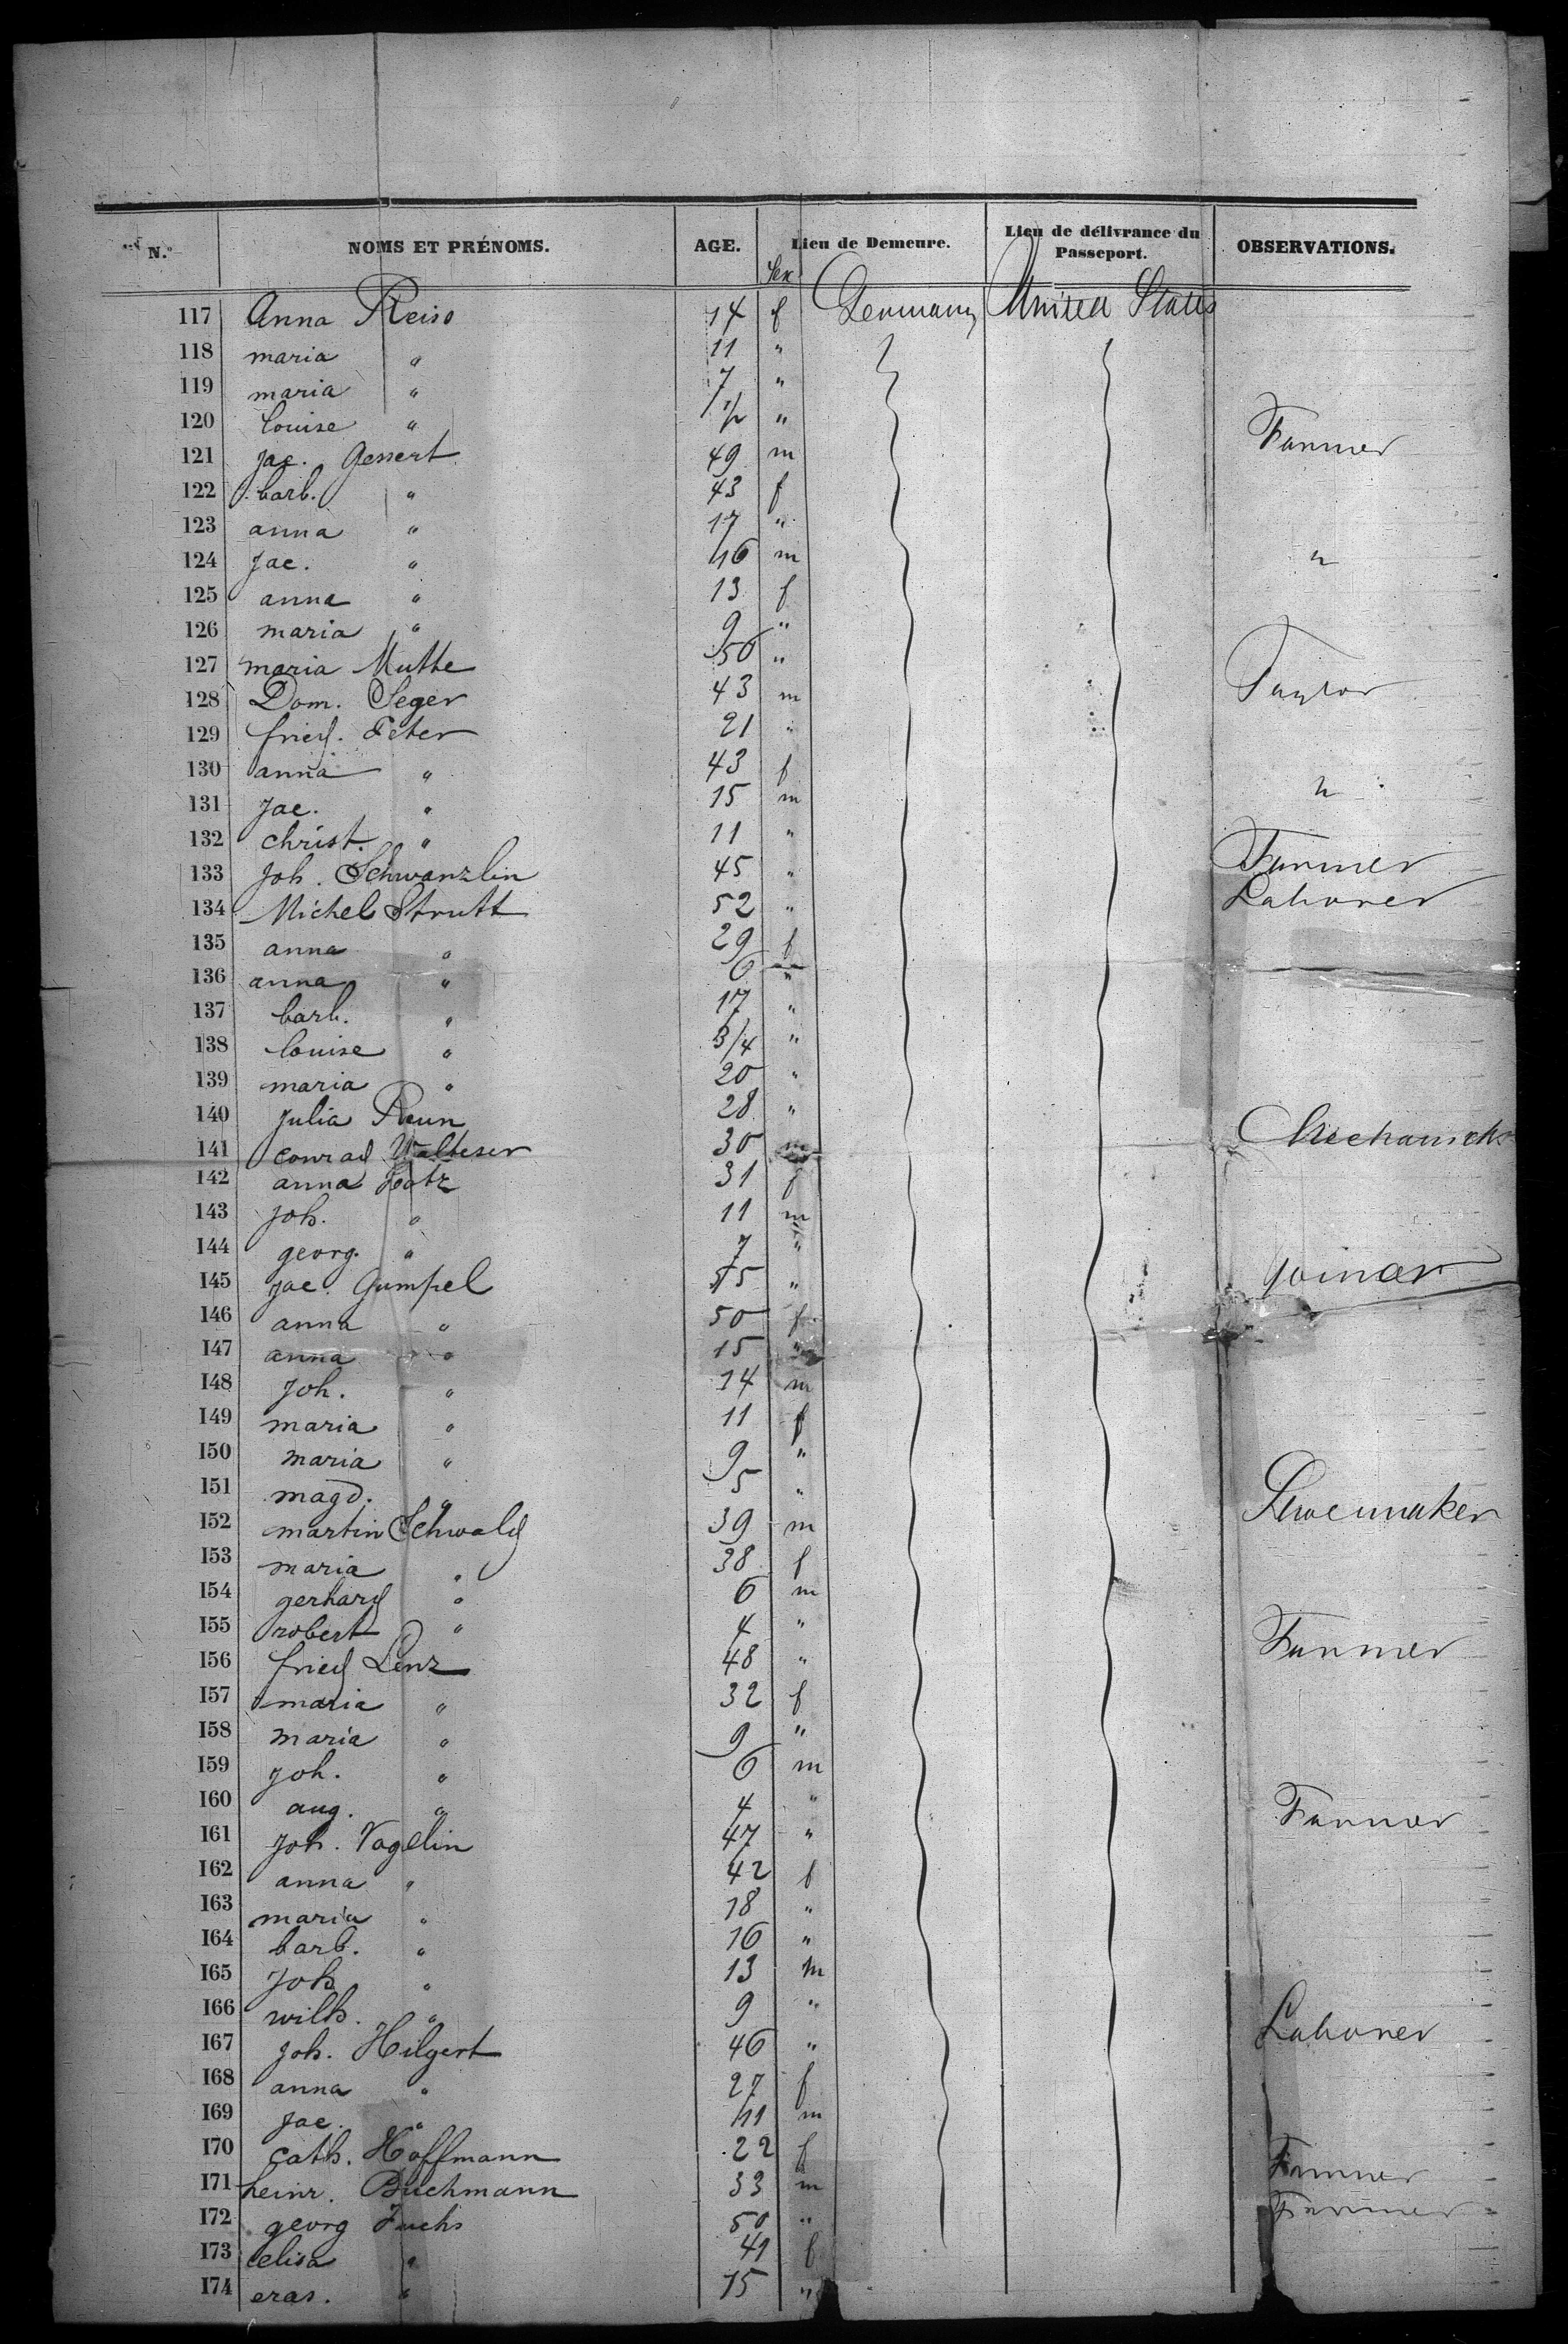 N.° NOMS ET PRÉNOMS. AGE. Sex Lieu de Demeure. Lieu de délivrance du Passeport. OBSERVATIONS.
117 Anna Reiss 14 f Germany United States
118 maria " 11 "
119 maria " 7 "
120 louise " 1/2 "
121 Jac. Gessert 49 m Farmer
122 barb. " 43 f
123 anna " 17 "
124 Jac. " 16 m "
125 anna " 13 f
126 maria " 9 "
127 maria Mutte 50 "
128 Dom. Seger 43 m Taylor
129 fried. Peter 21 "
130 anna " 43 f
131 Jac. " 15 m "
132 christ. " 11 "
133 Joh. Schwanzlin 45 " Farmer
134 Michel Strutt 52 " Laborer
135 anna " 29 f
136 anna " 6 "
137 barb. " 17 "
138 louise " 3/4 "
139 maria " 20 "
140 Julia Reun 28 "
141 conrad Walteser 30 m Mechanicks
142 anna Hotz 31 f
143 Joh. " 11 m
144 georg. " 7 "
145 Jac. Gumpel 55 " Joiner
146 anna " 50 f
147 anna " 15 "
148 Joh. " 14 m
149 maria " 11 f
150 maria " 9 "
151 magd. " 5 "
152 martin Schwald 39 m Shoemaker
153 maria " 38 f
154 gerhard " 6 m
155 robert " 4 "
156 fried Lenz 48 " Farmer
157 maria " 32 f
158 maria " 9 "
159 Joh. " 6 m
160 aug. " 4 "
161 Joh. Vogelin 47 " Farmer
162 anna " 42 f
163 maria " 18 "
164 barb. " 16 "
165 Joh " 13 m
166 wilh. " 9 "
167 Joh. Hilgert 46 " Laborer
168 anna " 27 f
169 Jac. " 11 m
170 cath. Hoffmann 22 f
171 heinr. Buchmann 33 m Farmer
172 georg Fuchs 50 " Farmer
173 elisa " 41 f
174 eras. " 15 "